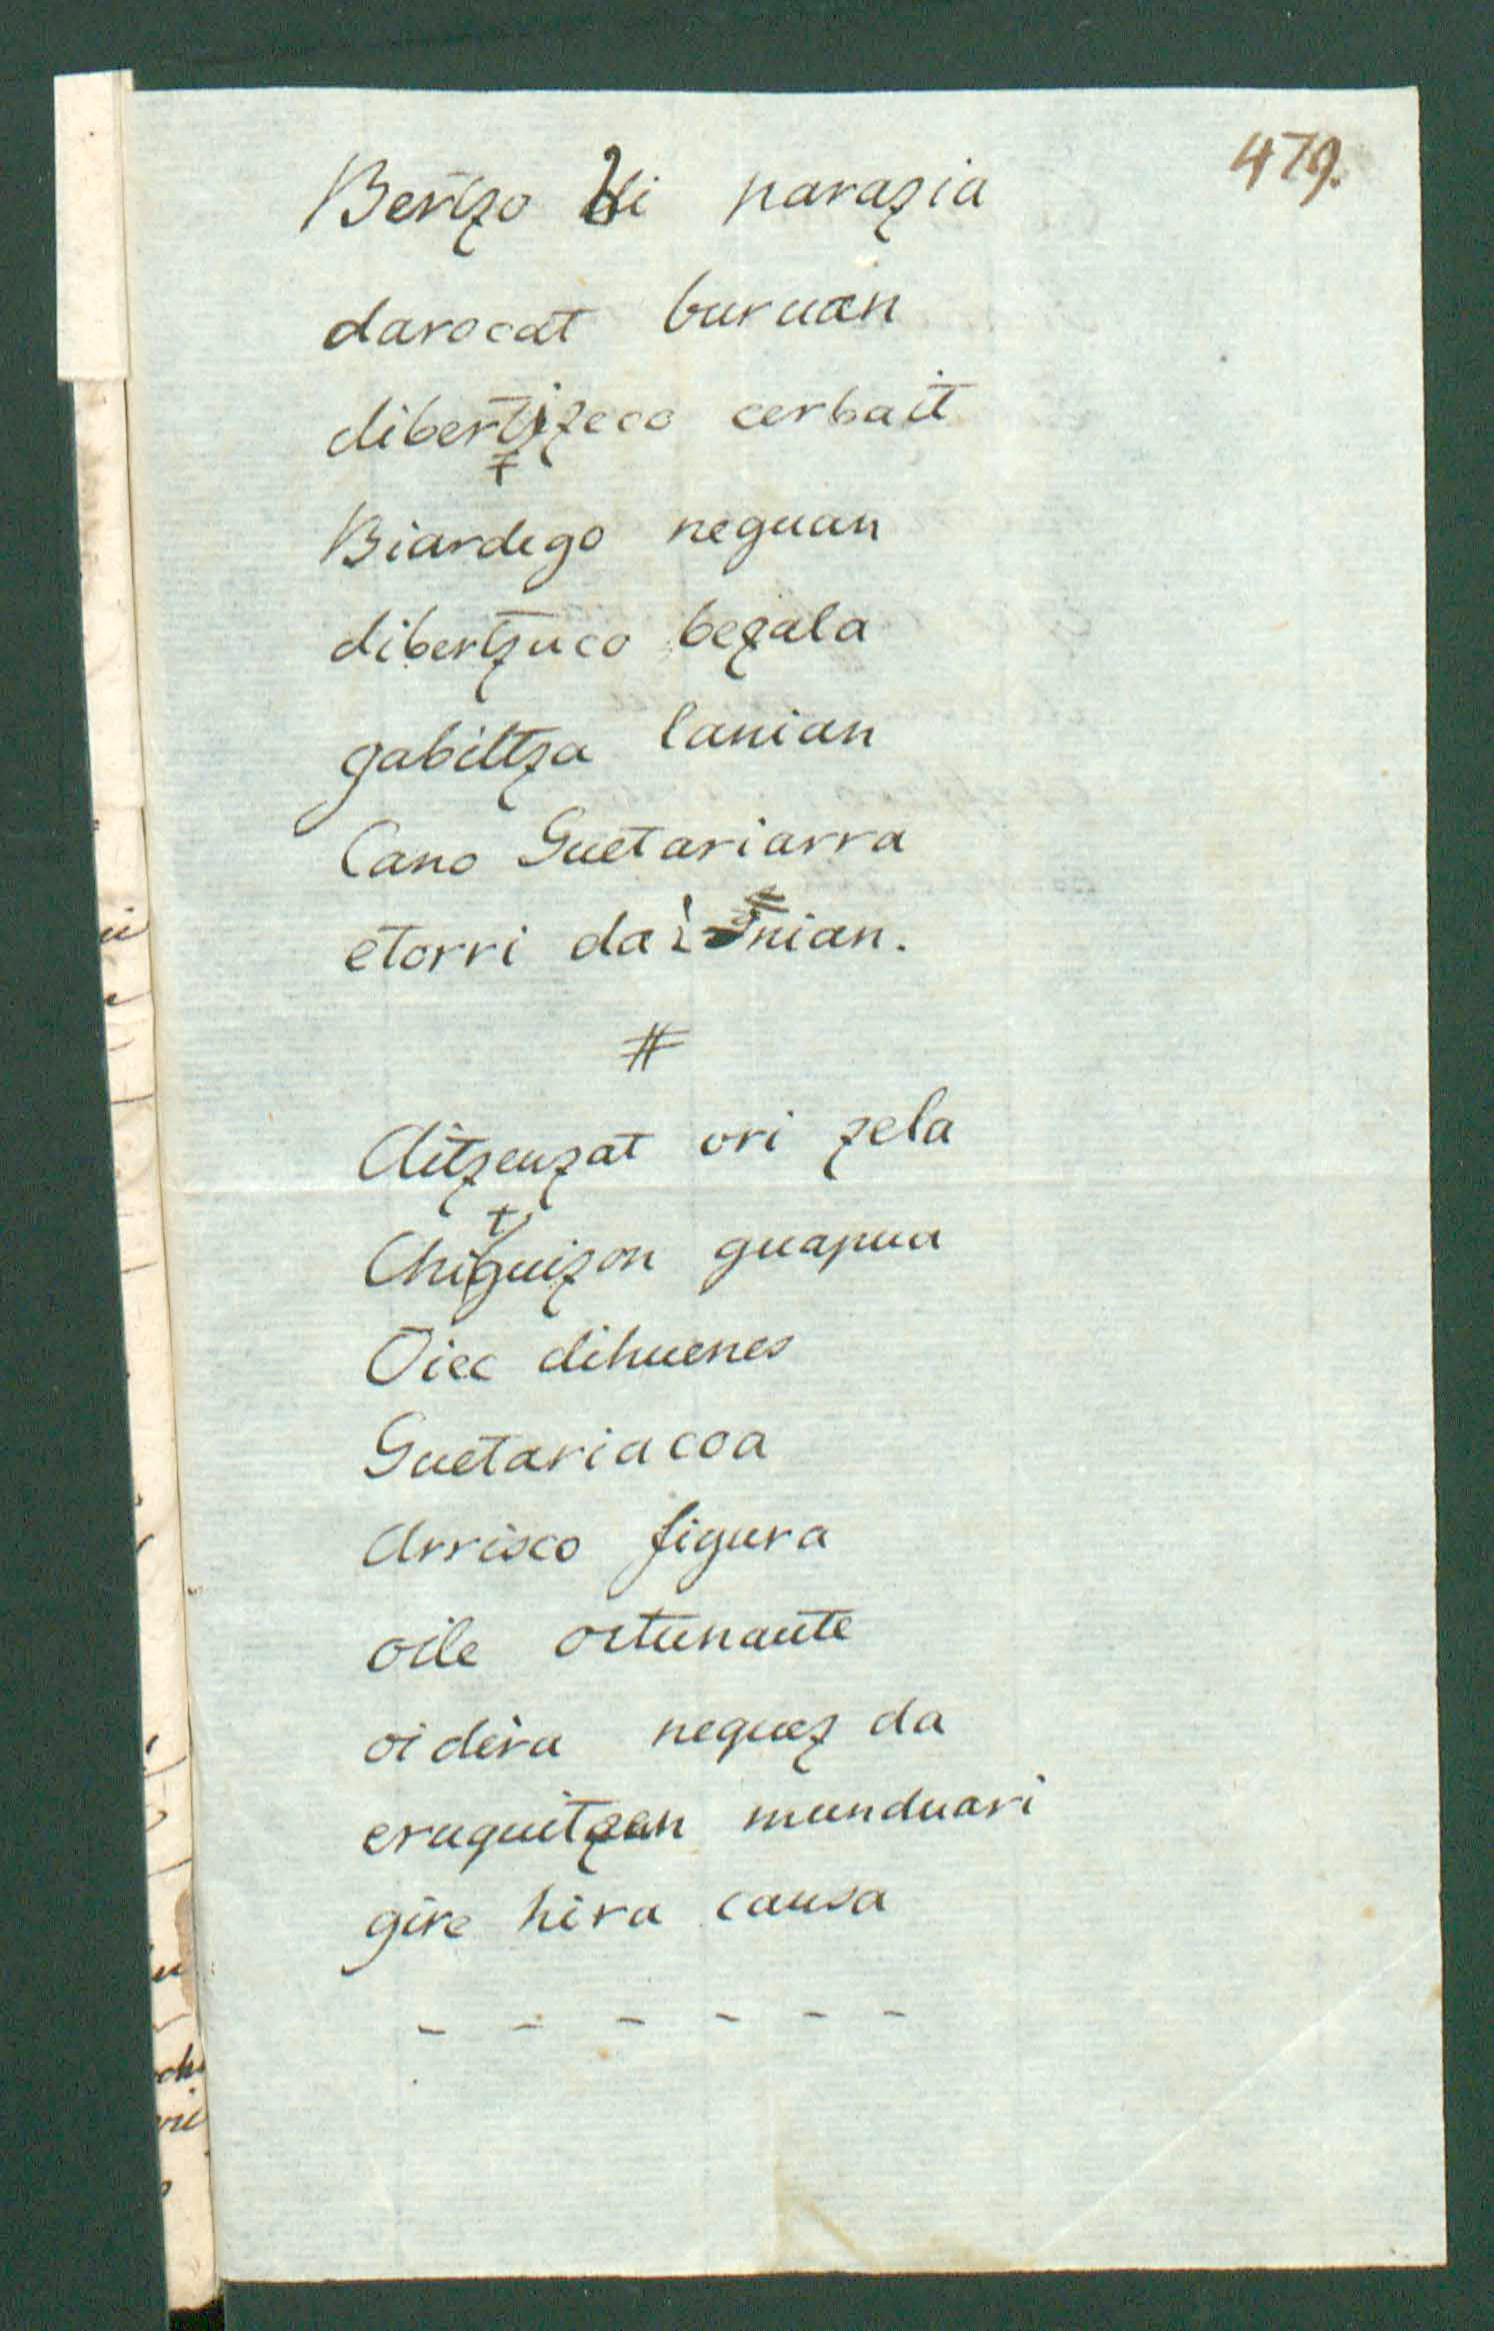 479.
Bertzo bi parazia
darocat buruan
dibertizeco cerbait
Biardego neguan
dibertzuco bezala
gabiltza lanian
Cano Guetariarra
etorri da nian.
#
Aitzeuzat ori zela
Chiguizon guapua
Oiec dihuenes
Guetariacoa
Arrisco figura
oile ortunaute
oidera neguez da
eruquitzen munduari
gire hira causa
- - - - - -